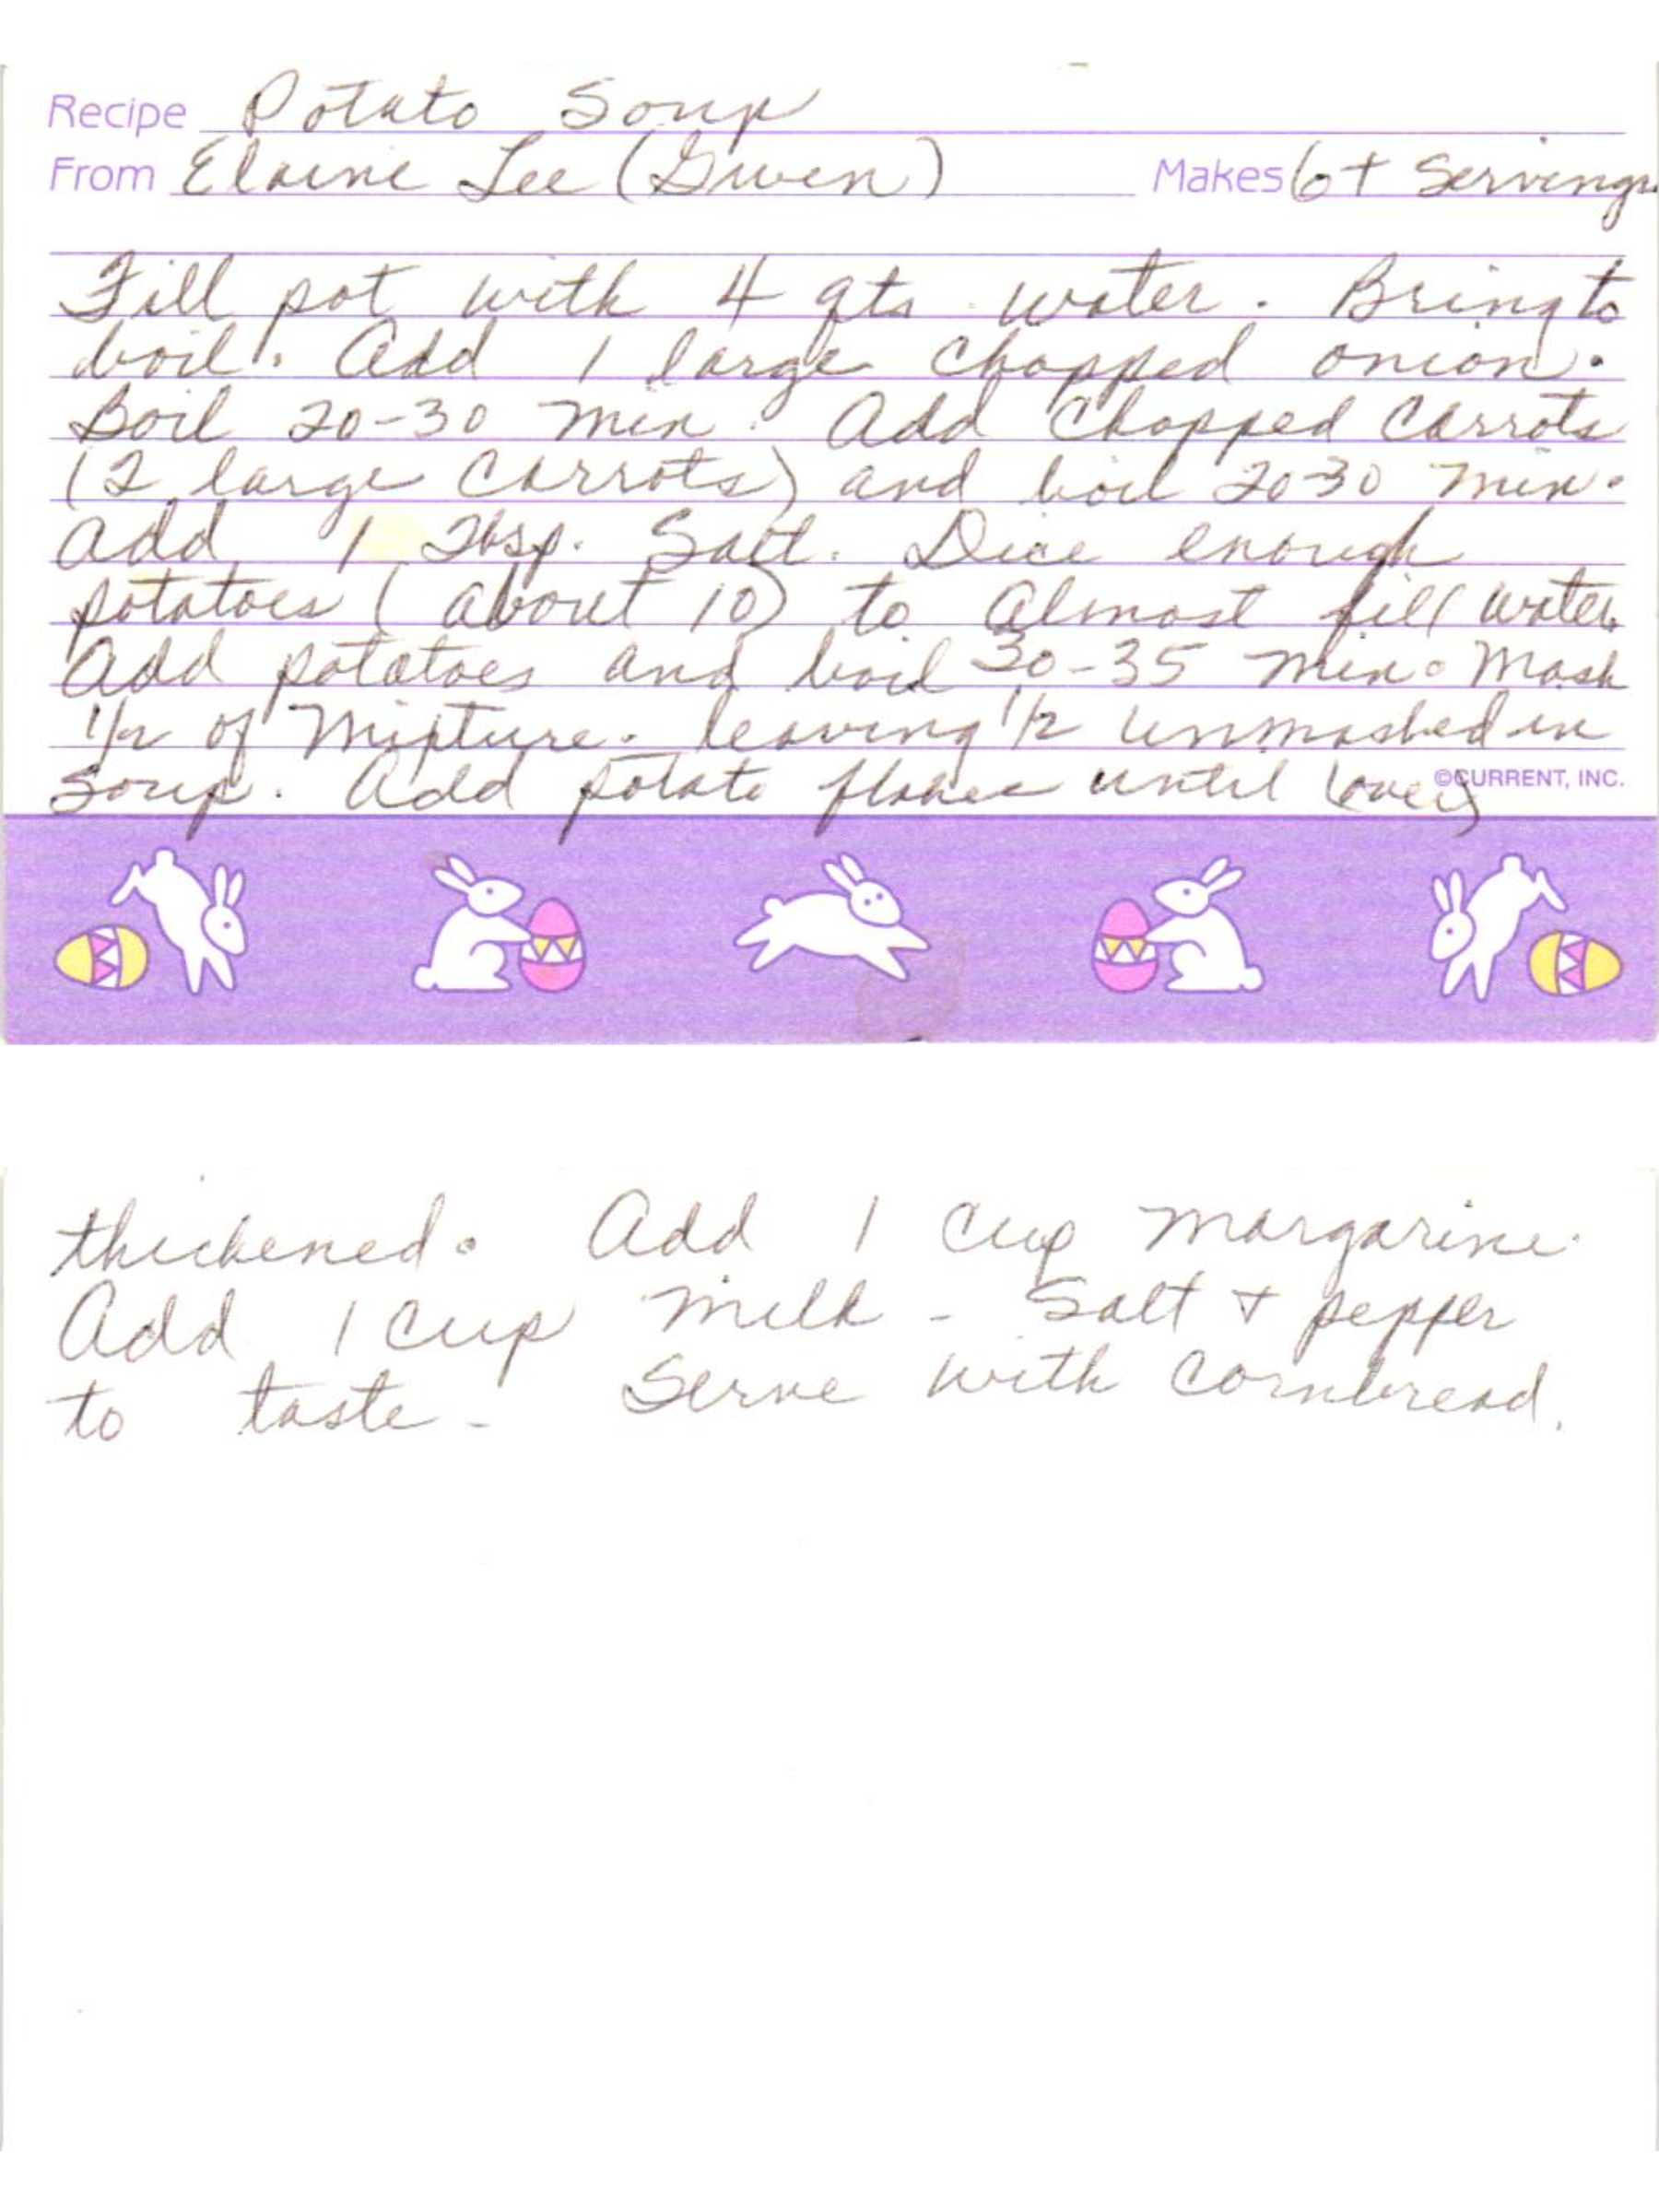 Recipe Potato Soup
From Elaine Lee (Gwen) Makes 6+ Servings
Fill pot with 4 qts water. Bring to
boil. Add 1 large chopped onion.
Boil 20-30 min. Add Chopped Carrots
(2 large Carrots) and boil 20-30 min.
add 1 Tbsp. Salt. Dice enough
potatoes (about 10) to almost fill water.
Add potatoes and boil 30-35 min. Mash
1/2 of Mixture. leaving 1/2 unmashed in
Soup. Add potato flakes until (over)
©CURRENT, INC.
thickened. Add 1 cup margarine.
Add 1 Cup milk - Salt & pepper
to taste - Serve with Cornbread.